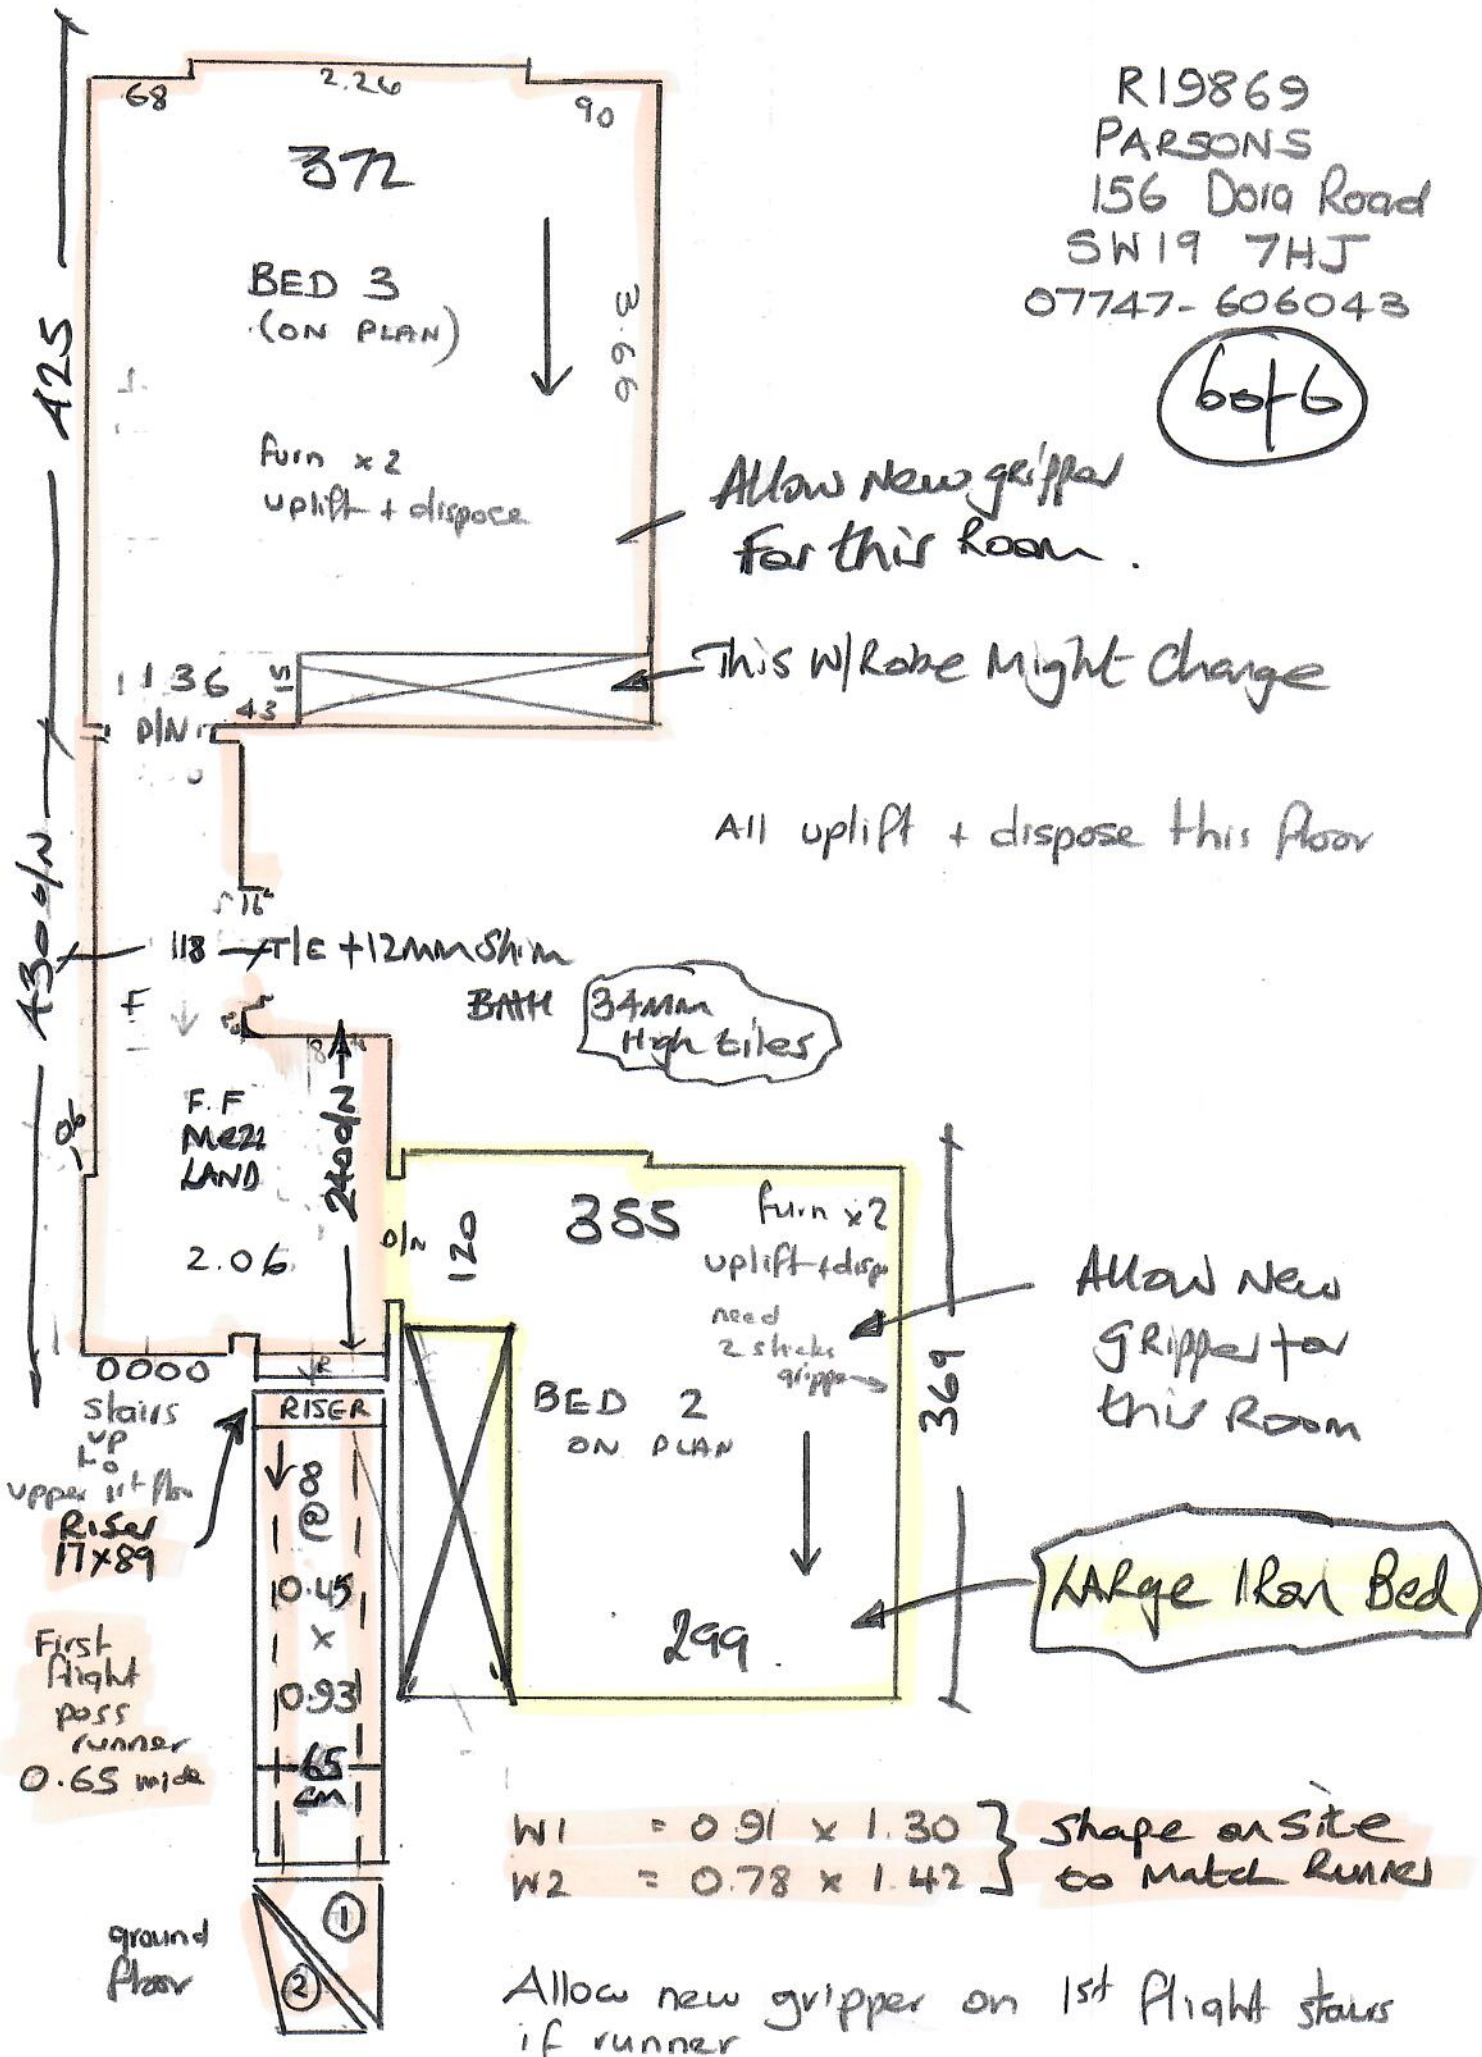 R19869
PARSONS
156 Dora Road
SW19 7HJ
07747-606043
6 of 6
68
2.26
90
372
BED 3
(ON PLAN)
3.66
425
furn x2
uplift + dispose
Allow New gripper
For this Room.
This W/Robe Might Change
1 1 36
51
43
D/N
All uplift + dispose this floor
430 D/N
16
118
T/E + 12mm Shim
BATH
34mm
High tiles
F.F
Mezz
LAND
240 D/N
2.06
D/N
120
355
furn x2
uplift + disp
need
2 sticks
gripper
Allow New
gripper for
this Room
369
BED 2
ON PLAN
299
LARge IRon Bed
0000
R
stairs
up
to
upper 1st flr
RISER
Riser
17x89
8
@
0.45
x
0.93
65
cm
First
flight
poss
runner
0.65 wide
W1 = 0.91 x 1.30
W2 = 0.78 x 1.42
shape on site
to Match Runner
ground
floor
1
2
Allow new gripper on 1st flight stairs
if runner